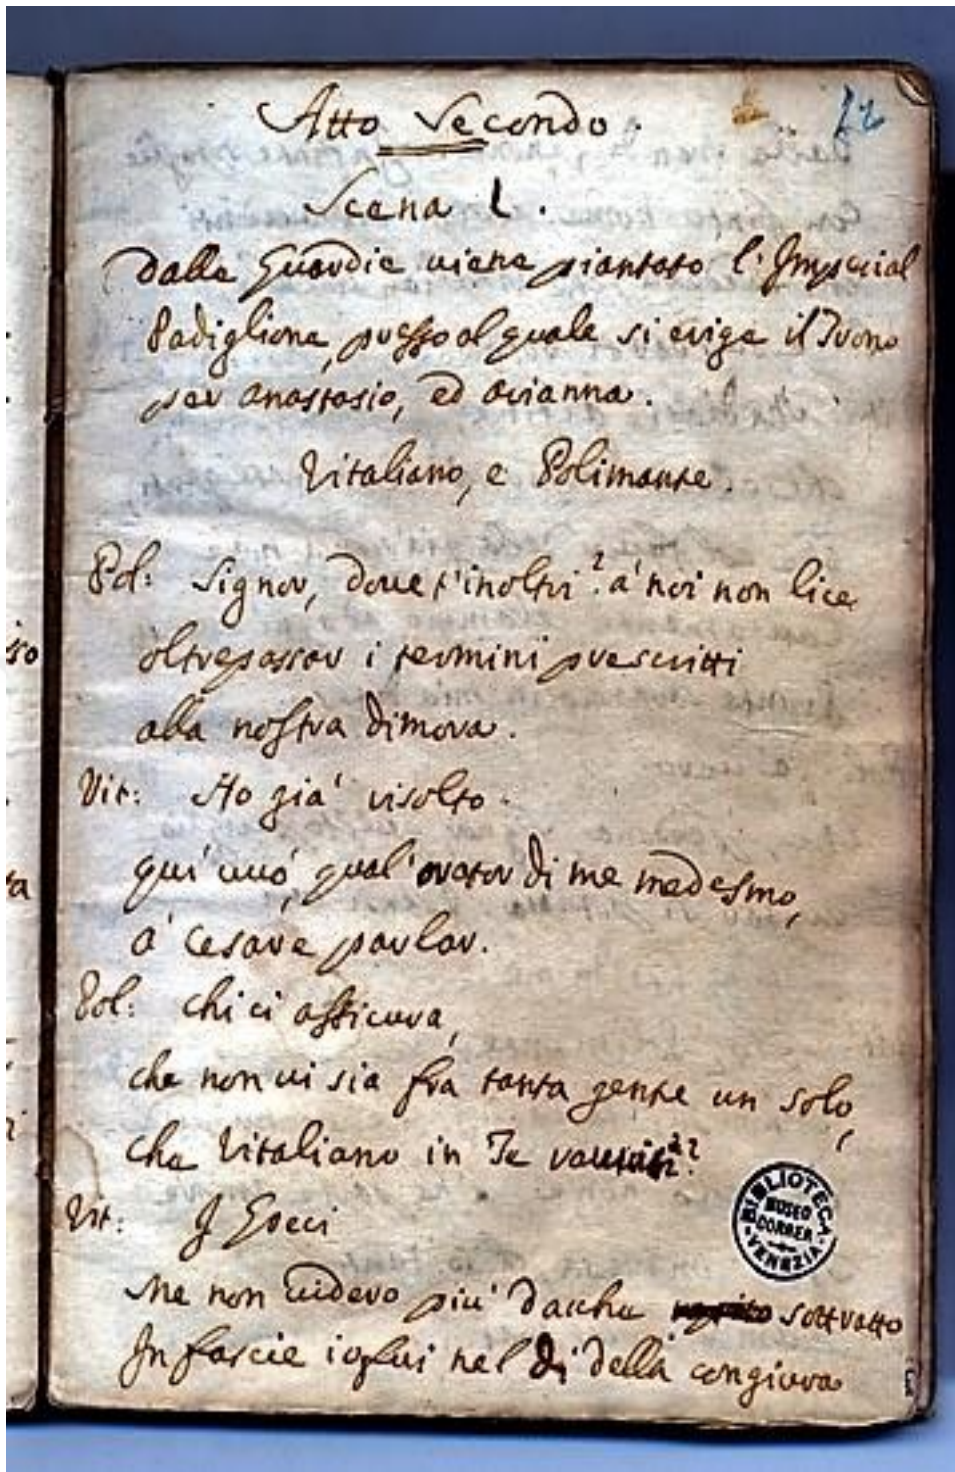 Atto Secondo.
72
Scena 1.
Dalle Guardie viene piantato l'Imperial
Padiglione, presso al quale si erige il Trono
per Anastasio, ed Arianna.
Vitaliano, e Polimante.
Pol: Signor, dove t'inoltri? à noi non lice
oltrepassar i termini prescritti
alla nostra dimora.
Vit: Ho già risolto.
quì vuó, qual'orator di me medesmo,
à Cesare parlar.
Pol: chi ci assicura,
che non vi sia frà tanta gente un solo,
che Vitaliano in Te
Vit: I Greci
Me non videro più dacche sottratto
In fascie io fui nel dì della congiura
so
ta
BIBLIOTECA
MUSEO
CORRER
VENEZIA